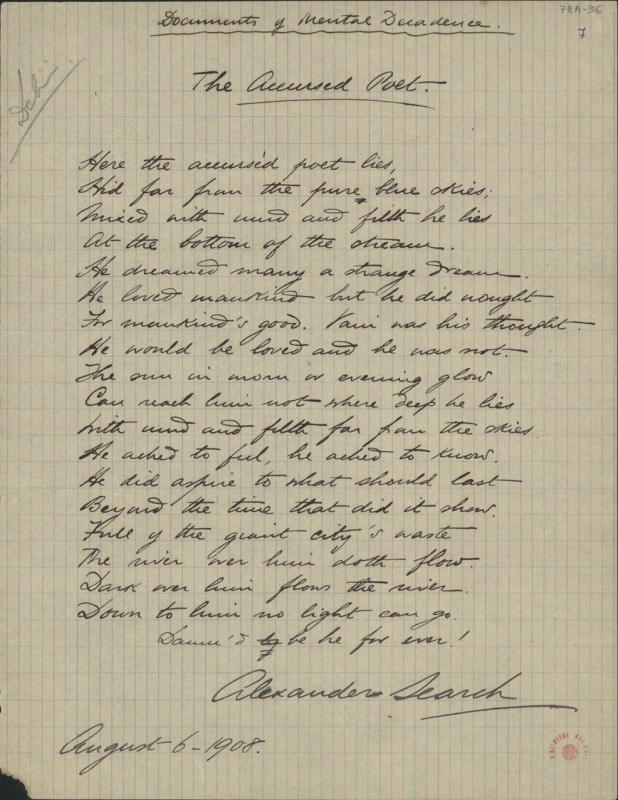 Documents of Mental Decadence.
78A-36
7
The Accursed Poet.
Here the accursèd poet lies,
Hid far from the pure blue skies;
Mixed with mud and filth he lies
At the bottom of the stream.
He dreamed many a strange dream.
He loved mankind but he did nought
For mankind's good. Vain was his thought.
He would be loved and he was not.
The sun in morn or evening glow
Can reach him not where deep he lies
With mud and filth far from the skies.
He ached to feel, he ached to know.
He did aspire to what should last
Beyond the time that did it show.
Full of the giant city's waste
The river over him doth flow.
Dark over him flows the river
Down to him no light can go.
Damn'd be he for ever!
Alexander Search
August 6-1908.